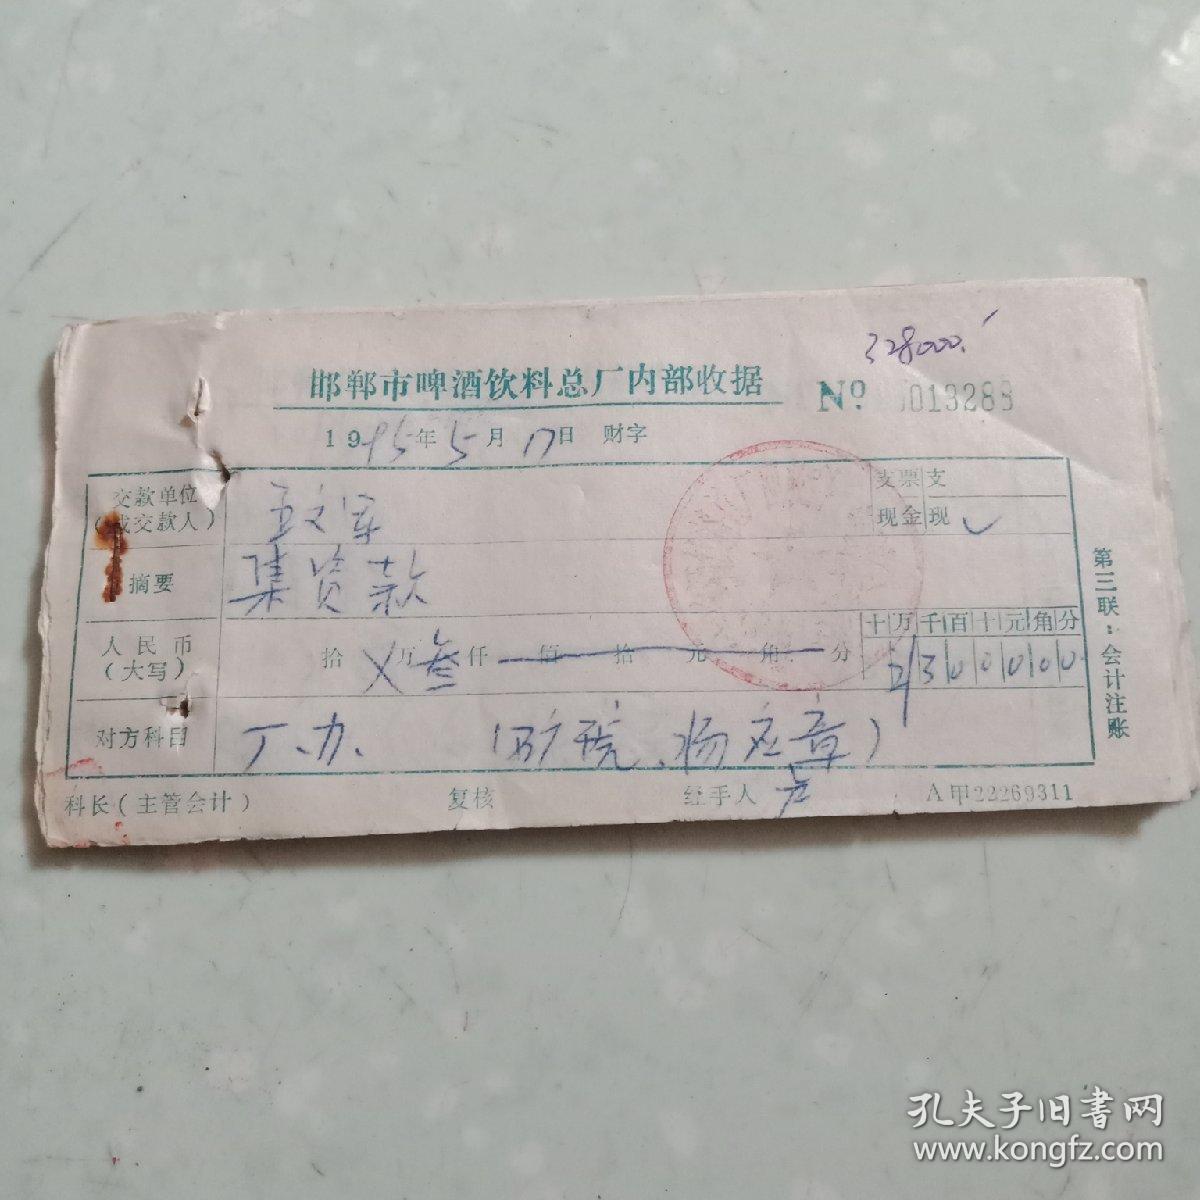 328000.
邯郸市啤酒饮料总厂内部收据 № 013288
1995年5月17日 财字
交款单位
(或交款人)
文军
支票 支
现金 现 ✓
摘要 集资款
人民币
(大写)
拾 万叁仟 佰 拾 元 角 分
十万千百十元角分
300000
对方科目 厂、办、 (矿院、杨应章)
科长(主管会计) 复核 经手人 A甲22269311
第三联:会计注账
孔夫子旧书网
www.kongfz.com